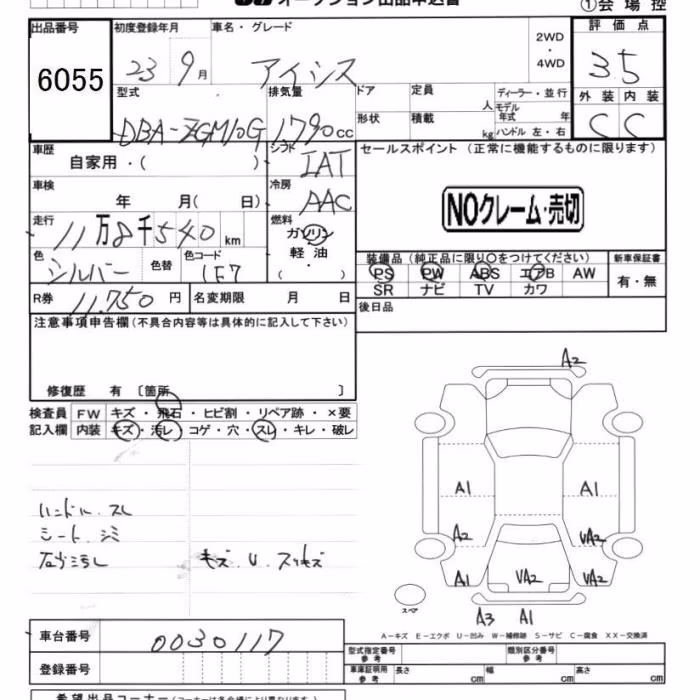 オークション出品申込書
①会場控
出品番号 6055
初度登録年月 23 9月
車名・グレード アイシス
2WD・4WD
評価点 3.5
外装 C 内装 C
型式 DBA-ZGM10G
排気量 1790cc
ドア 形状
定員 人
積載 kg
ディーラー・並行
モデル年式 年
ハンドル 左・右
車歴 自家用・( )
シフト IAT
セールスポイント(正常に機能するものに限ります)
車検 年 月( 日)
冷房 AAC
NOクレーム・売切
走行 11万8千540km
燃料 ガソリン 軽油 ・( )
色 シルバー 色替 色コード 1F7
装備品(純正品に限り○をつけてください)
新車保証書
PS PW ABS エアB AW
有・無
SR ナビ TV カワ
R券 11,750円 名変期限 月 日
後日品
注意事項申告欄(不具合内容等は具体的に記入して下さい)
修復歴 有〔箇所 〕
検査員 FW キズ・飛石・ヒビ割・リペア跡・×要
記入欄 内装 キズ・汚レ・コゲ・穴・スレ・キレ・破レ
A2
A1 A1
A2 UA2
A1 UA2 UA2
A3 A1
ハンドル.スレ
シート.シミ
キズ.U.スリキズ
スペア
A-キズ E-エクボ U-凹み W-補修跡 S-サビ C-腐食 XX-交換済
車台番号 0030117
登録番号
型式指定番号 参考
類別区分番号 参考
車庫証明用 参考 長さ cm 幅 cm 高さ cm
希望出品コーナー(コーナーは各会場により異なります)